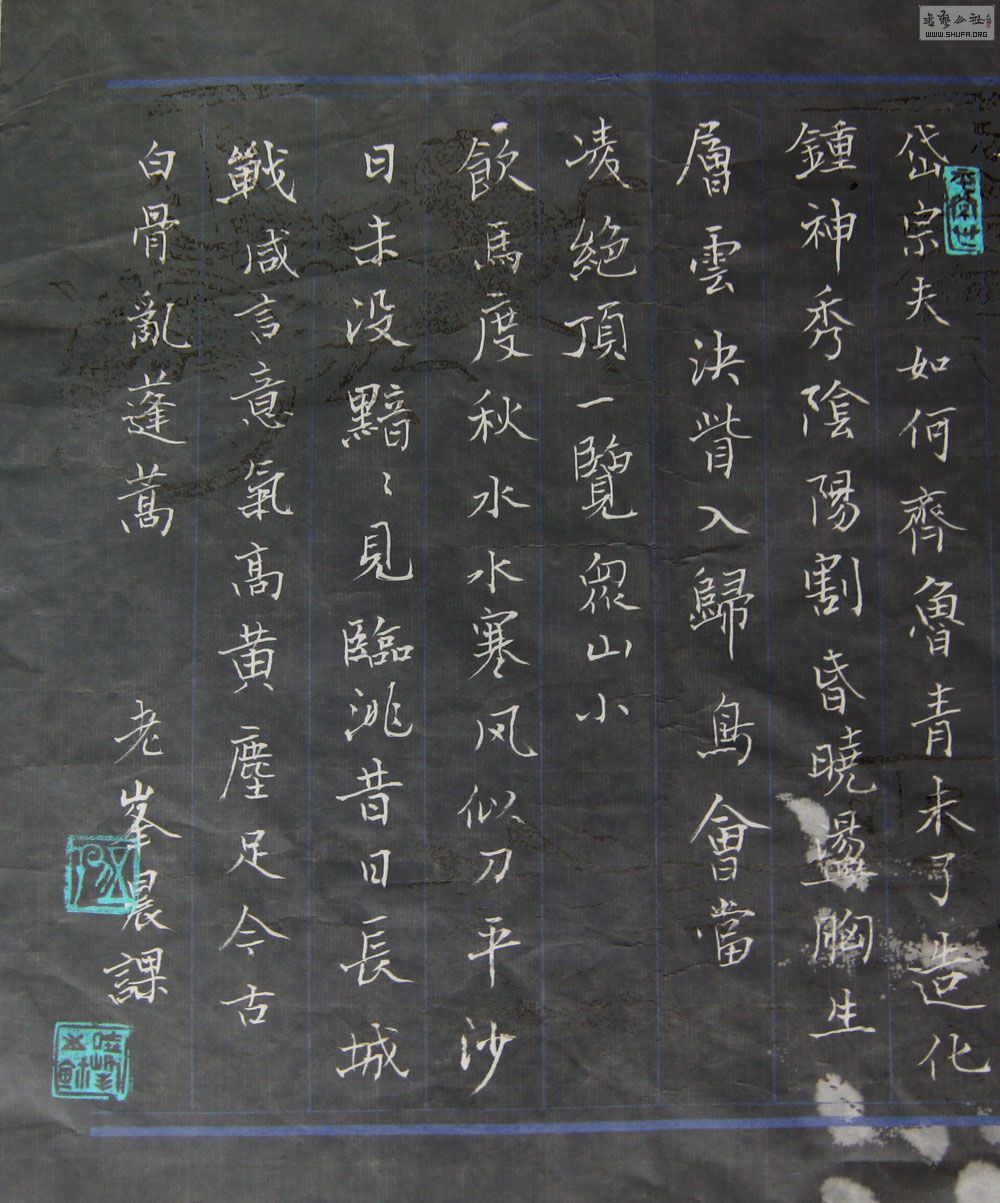 岱宗夫如何齊魯青未了造化
鍾神秀陰陽割昏曉盪胸生
層雲決眥入歸鳥會當
凌絕頂一覽眾山小
飲馬度秋水水寒风似刀平沙
日未没黯〻見臨洮昔日長城
戰咸言意氣高黄塵足今古
白骨亂蓬蒿
老峯晨課
書藝公社
WWW.SHUFA.ORG